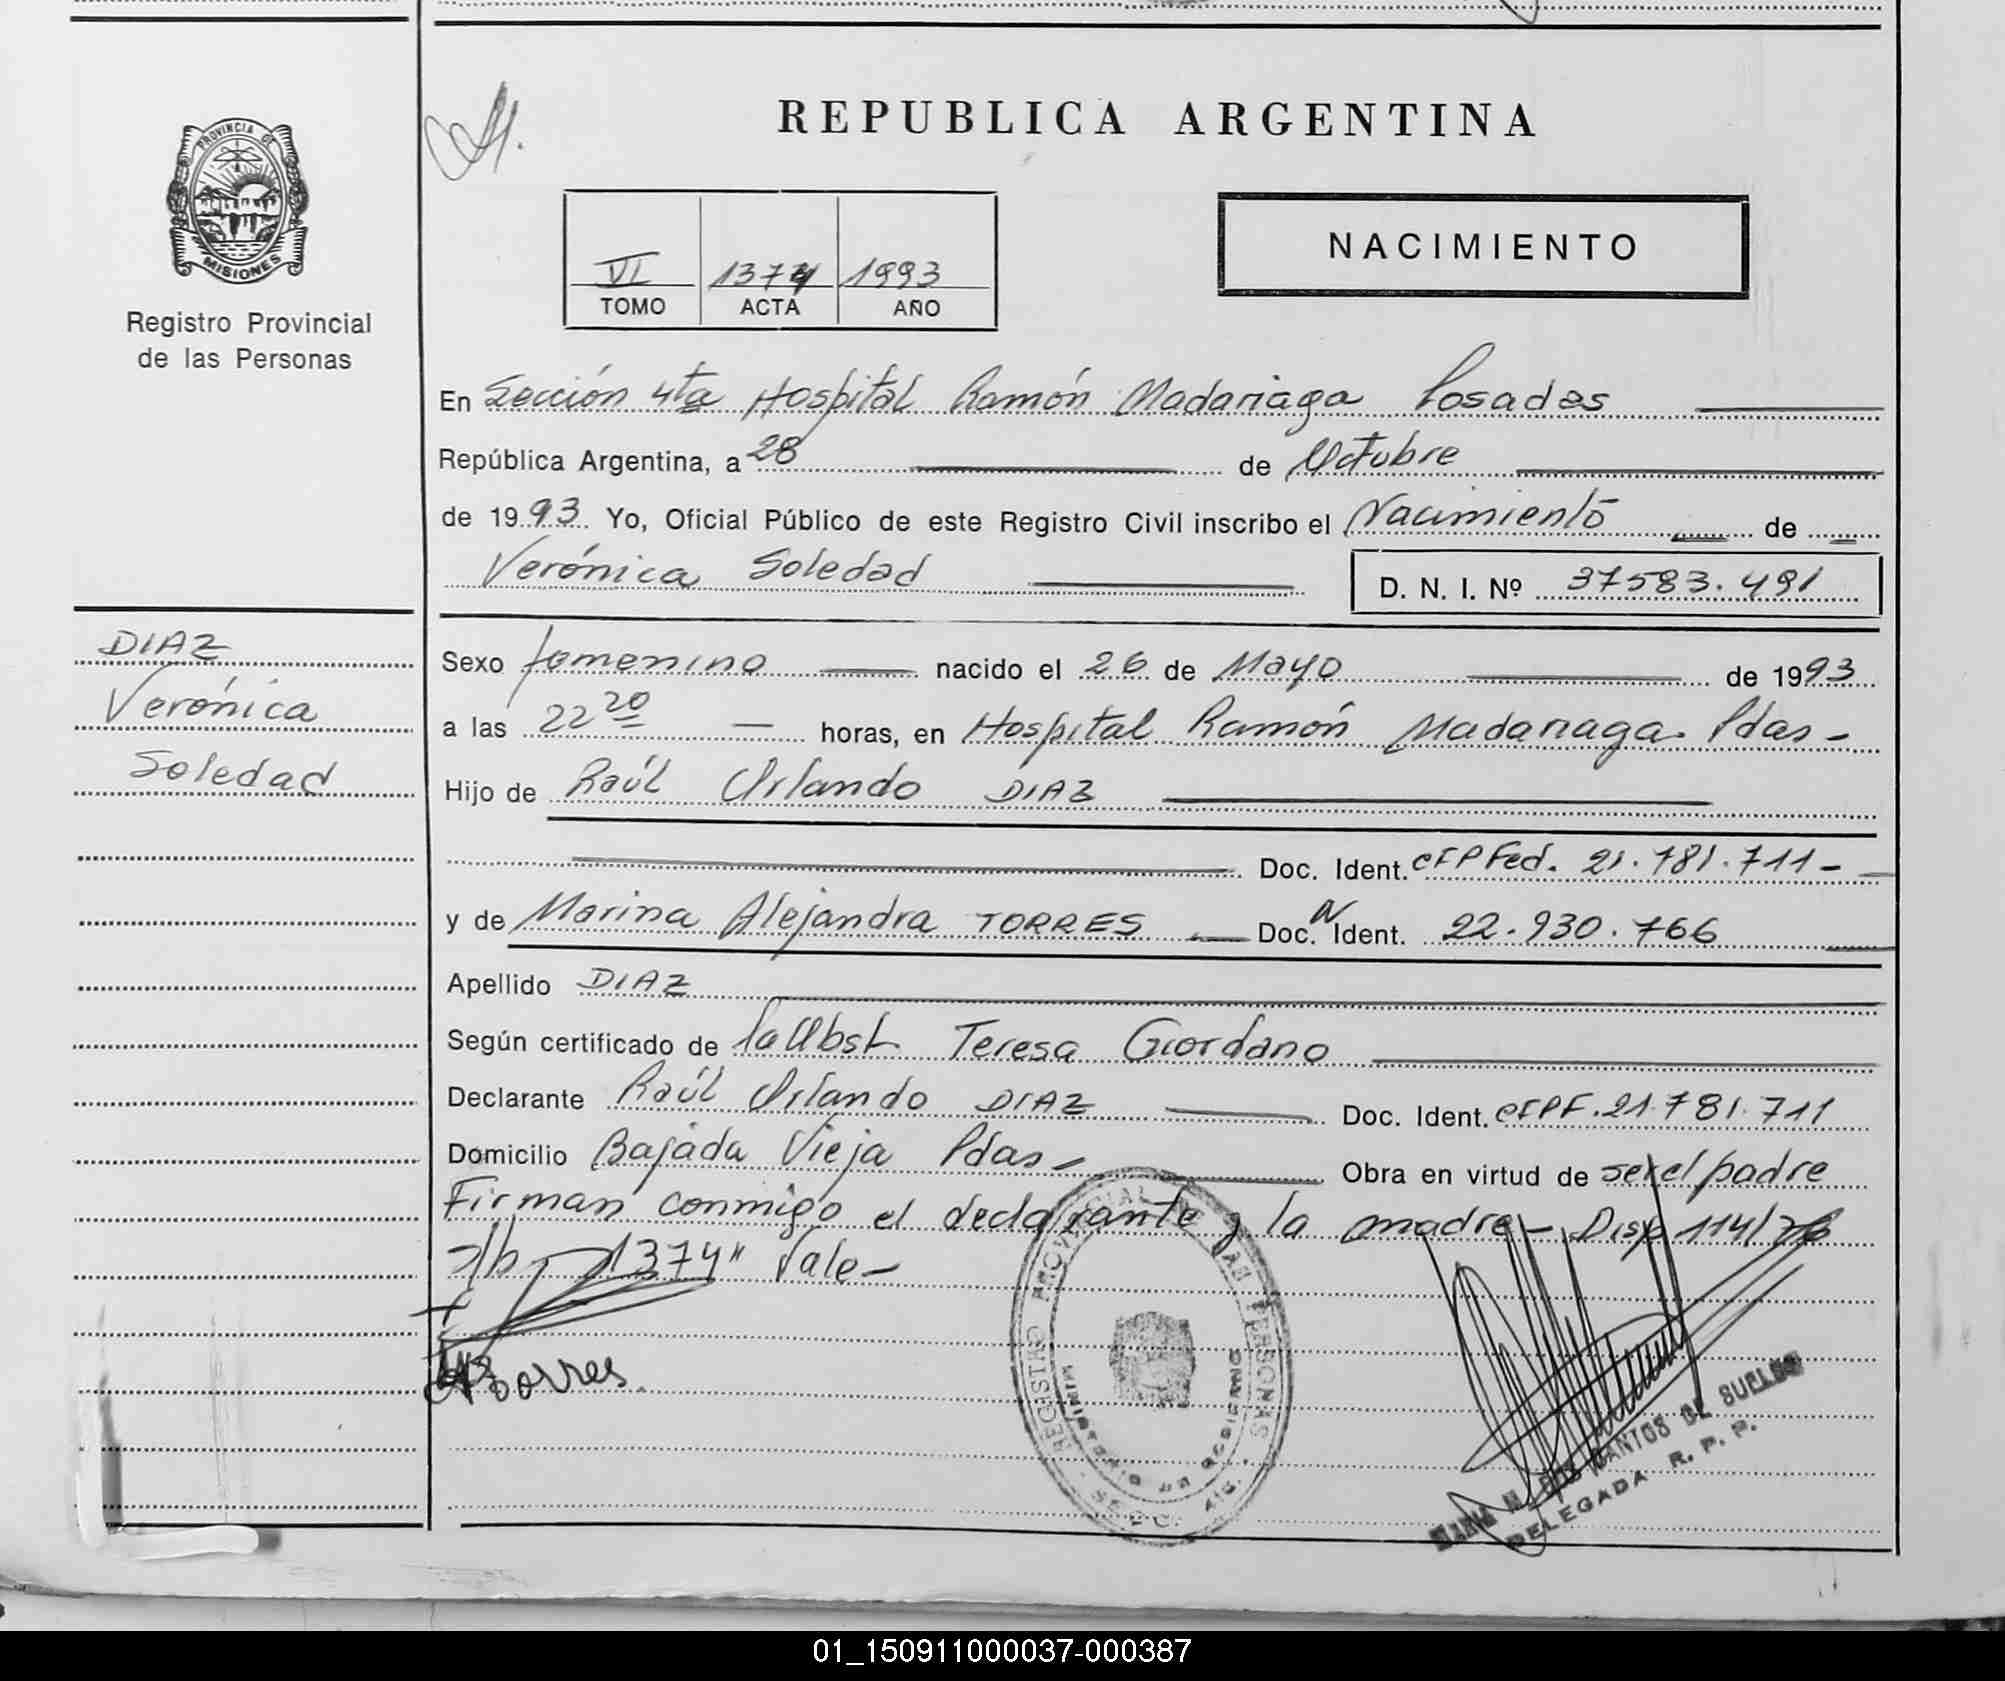 REPUBLICA ARGENTINA
PROVINCIA DE
MISIONES
Registro Provincial
de las Personas
VI 1374 1993
TOMO ACTA AÑO
NACIMIENTO
En Sección 4ta Hospital Ramón Madariaga Posadas
República Argentina, a 28 de Octubre
de 1993 Yo, Oficial Público de este Registro Civil inscribo el Nacimiento de
Verónica Soledad D. N. I. Nº 37583.491
DIAZ
Verónica
Soledad
Sexo femenino nacido el 26 de Mayo de 1993
a las 22 20 horas, en Hospital Ramón Madariaga Pdas -
Hijo de Raúl Orlando DIAZ
Doc. Ident. CIPFed. 21.781.711 -
y de Marina Alejandra TORRES Doc. N Ident. 22.930.766
Apellido DIAZ
Según certificado de la Obst Teresa Giordano
Declarante Raúl Orlando DIAZ Doc. Ident. CIPF. 21.781.711
Domicilio Bajada Vieja Pdas - Obra en virtud de ser el padre
Firman conmigo el declarante y la madre - Disp 114/78
1374" Vale -
Torres
REGISTRO PROVINCIAL DE LAS PERSONAS
MINISTERIO DE GOBIERNO
SANTOS DE
DELEGADA R. P. P.
01_150911000037-000387